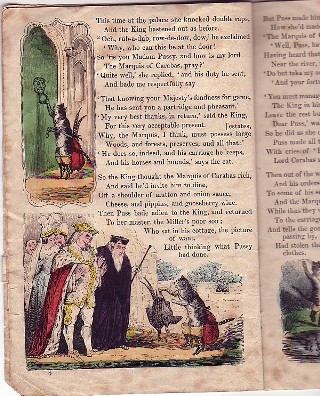 This time at the palace she knocked double raps,
And the King hastened out as before.
row-de-dow, dow! he exclaims
'Why, who can this be at the door?
So 'tis you Madam Pussy, and how is my lord
The Marquis of Carabas, pray?
'Quite well,' she replied, 'and his duty he sent,
And bade me respectfully say
'That knowing your Majesty's fondness for game,
He has sent you a partridge and pheasant.'
'My very best thanks, in return,' said the King,
For this very acceptable present. [estates,
Why, the Marquis, I think, must possess large
Woods, and forests, preserves, and all that:'
'He does so, indeed, and his carriage he keeps,
And his horses and hounds,' says the cat.
So the King thought the Marquis of Carabas rich,
And said he'd invite him to dine,
Off a shoulder of mutton and onion sauce,
Cheese and pippins, and gooseberry wine.
Then Puss bade adieu to the King, and returned
To her master the Miller's poor son;
Who sat in his cottage, the picture
of want,
Little thinking what Pussy
had done.
But Puss made him
How she'd made
'The Marquis of C
'Well, Puss,
Having heard that
Near the river,
'Do but take my
'And your fortu
'You must manage
The King in his
Leave the rest
Dear Puss,'
So he did as she
Puss made all
With cries of
Lord Carabas
Then out of the w
And his orders
To some of his
And the Marquis
While thus they
To the carriage
And tells the
passing by,
Had stolen the
clothes.